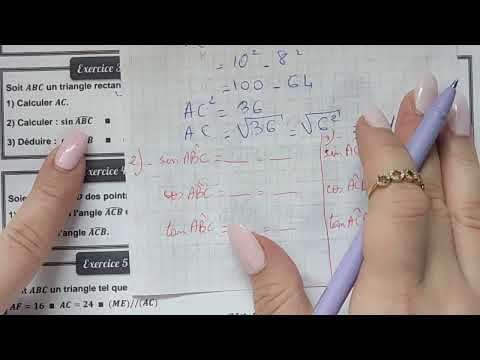 Exercice 3
Soit ABC un triangle rectan
1) Calculer AC.
2) Calculer : sin ABC ■
3) Déduire :
Exercice 4
Soie D des points
l'angle ACB e
l'angle ABC.
Exercice 5
ABC un triangle tel que
AF = 16 ■ AC = 24 ■ (ME)//(AC)
= 10² - 8²
= 100 - 64
AC² = 36
AC = √36 = √6²
2)- sin ABĈ = __ = __
cos ABĈ = __ = __
tan ABĈ = __ = __
sin AC
cos AC
tan AC